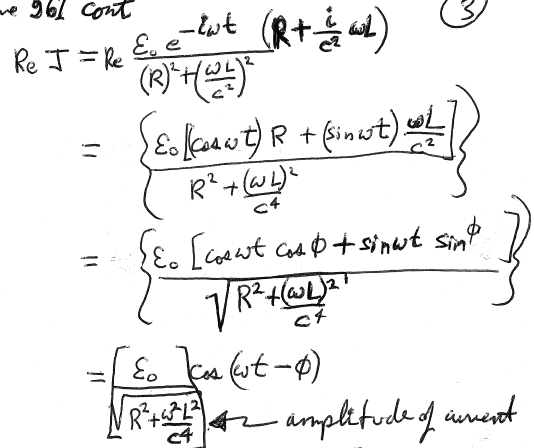 961 cont 3
Re J = Re ε₀ e^{-iωt} (R + i/c² ωL) / ((R)² + (ωL/c²)²)
= { ε₀ [(cos ωt) R + (sin ωt) ωL/c²] / (R² + (ωL)²/c⁴) }
= { ε₀ [cos ωt cos φ + sin ωt sin φ] / √(R² + (ωL)²/c⁴) }
= [ε₀ / √(R² + ω²L²/c⁴)] cos (ωt − φ)
amplitude of current